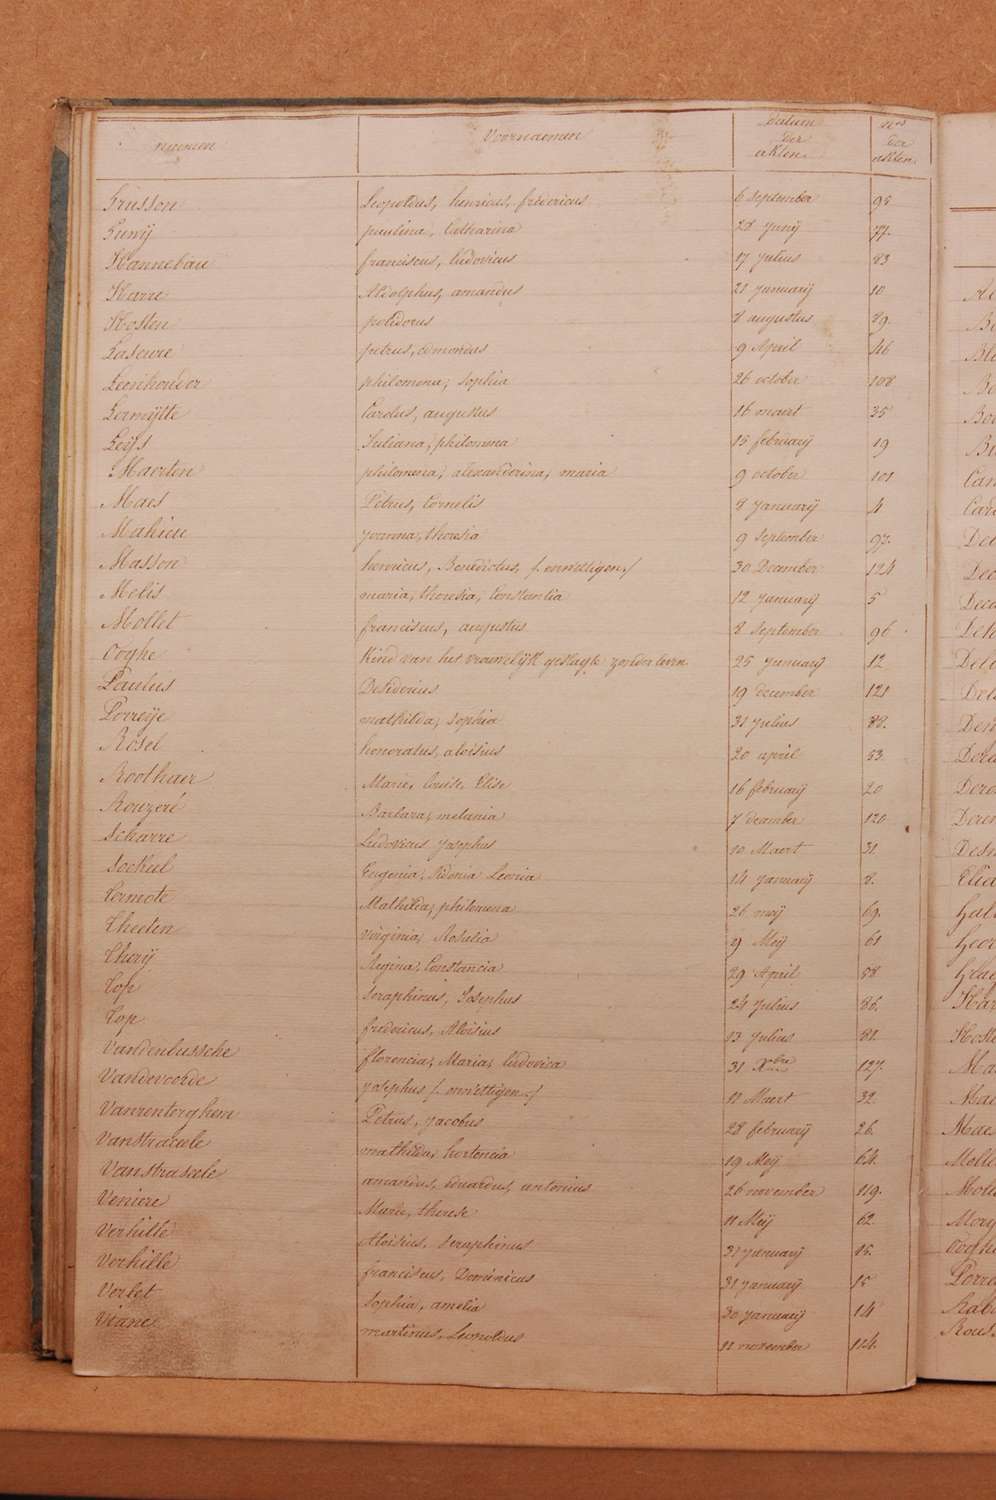 naemen Voornaemen datum der akten nos der akten
Grusson Leopoldus, henricus, fredericus 6 september 95
Gunij paulina, Catharina 28 Junij 77.
Hannebau franciscus, ludovicus 17 Julius 83
Harre Adolphus, amandus 21 Januarij 10
Hosten polidorus 8 augustus 89.
Laseure petrus, edmondus 9 April 46
Leenhouder philomena, Sophia 26 october 108
Lermijtte Carolus, augustus 16 maart 35
Leijs Juliana, philomena 15 februarij 19
Maerten philomena, alexanderina, maria 9 october 101
Maes Petrus, Cornelis 8 Januarij 4
Mahieu Joanna, theresia 9 September 97.
Masson henricus, Benedictus, (onwettigen) 30 December 124
Melis maria, theresia, Constantia 12 Januarij 5
Mollet franciscus, augustus 8 September 96
Ooghe Kind van het vrouwelijk geslagte zonder leven 25 Januarij 12
Paulus Desiderius 19 december 121
Porreije mathilda, Sophia 31 Julius 88.
Rosel honoratus, aloisius 20 april 53
Roothaer Marie, Louise, Elise 16 februarij 20
Rouzeré Barbara, melania 7 december 120
Scharre Ludovicus Josephus 10 Maert 31.
Sockeel Eugenia, Sidonia Leonia 14 Januarij 8.
Termote Mathilda, philomena 26 meij 69.
Theeten virginia, Rosalia 9 Meij 61
Therij Regina, Constancia 29 April 58
Top Seraphinus, Josephus 24 Julius 86.
Top fredericus, Aloisius 13 Julius 81.
Vandenbussche florencia, Maria, ludovica 31 Xbre 127.
Vandevoorde Josephus (onwettigen) 11 Maert 32.
Vanrenterghem Petrus, Jacobus 28 februarij 26.
Vanstraceele mathilda, hortencia 19 Meij 64.
Vanstraseele amandus, eduardus, antonius 26 november 119.
Veniere Marie, therese 11 Meij 62.
Verhille Aloisius, Seraphinus 31 Januarij 15.
Verhille franciscus, Dominicus 31 Januarij 15
Verlet Sophia, amelia 30 Januarij 14
Viane martinus, Leopoldus 11 november 114.